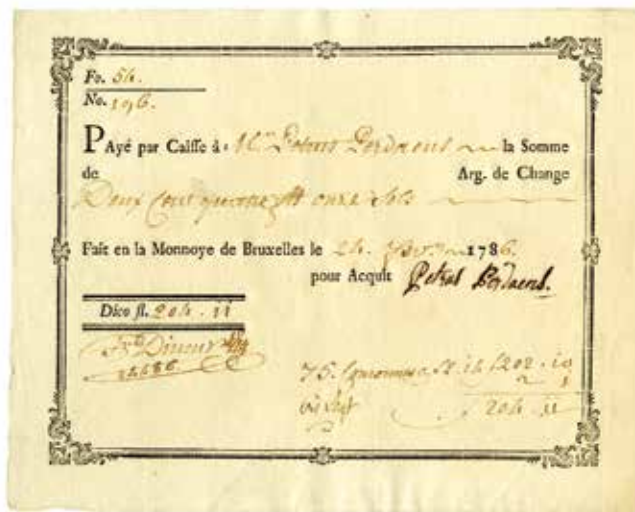 Fo. 54.
No. 196.
PAyé par Caisse à Mr. Petrus Perdaens la Somme
de Arg. de Change
Deux Cent quatre onze sols
Fait en la Monnoye de Bruxelles le 24. 1786.
pour Acquit Petrus Perdaens.
Dico fl. 204. 11
75. Couronnes a 202. 10
2 1
204. 11